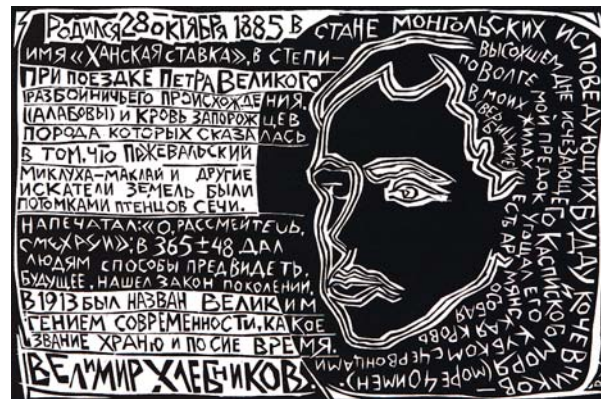 РОДИЛСЯ 28 ОКТЯБРЯ 1885 В
СТАНЕ МОНГОЛЬСКИХ ИСПОВЕДУЮЩИХ БУДДУ КОЧЕВНИКОВ
ИМЯ «ХАНСКАЯ СТАВКА», В СТЕПИ–
ВЫСОХШЕМ ДНЕ ИСЧЕЗАЮЩЕГО КАСПИЙСКОГО МОРЯ
(МОРЕ 40 ИМЕН).
ПРИ ПОЕЗДКЕ ПЕТРА ВЕЛИКОГО
ПО ВОЛГЕ МОЙ ПРЕДОК УГОЩАЛ ЕГО КУБКОМ С ЧЕРВОНЦАМИ
РАЗБОЙНИЧЬЕГО ПРОИСХОЖДЕНИЯ.
В МОИХ ЖИЛАХ ЕСТЬ АРМЯНСКАЯ КРОВЬ
(АЛАБОВЫ) И КРОВЬ ЗАПОРОЖЦЕВ
ПОРОДА КОТОРЫХ СКАЗАЛАСЬ
В ТОМ, ЧТО ПРЖЕВАЛЬСКИЙ
МИКЛУХА–МАКЛАЙ И ДРУГИЕ
ИСКАТЕЛИ ЗЕМЕЛЬ БЫЛИ
ПОТОМКАМИ ПТЕНЦОВ СЕЧИ.
НАПЕЧАТАЛ: «О, РАССМЕЙТЕСЬ,
СМЕХАЧИ»; В 365±48 ДАЛ
ЛЮДЯМ СПОСОБЫ ПРЕДВИДЕТЬ
БУДУЩЕЕ, НАШЕЛ ЗАКОН ПОКОЛЕНИЙ,
В 1913 БЫЛ НАЗВАН ВЕЛИКИМ
ГЕНИЕМ СОВРЕМЕННОСТИ, КАКОЕ
ЗВАНИЕ ХРАНЮ И ПО СИЕ ВРЕМЯ.
ВЕЛИМИР ХЛЕБНИКОВ